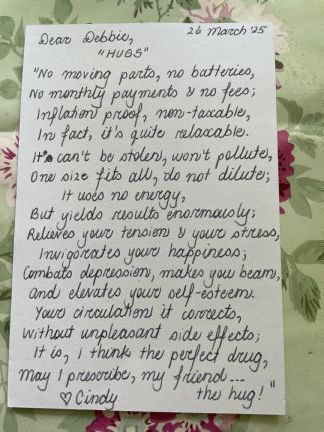 Dear Debbie, 26 March '25
"HUGS"
"No moving parts, no batteries,
No monthly payments & no fees;
Inflation proof, non-taxable,
In fact, it's quite relaxable.
It can't be stolen, won't pollute,
One size fits all, do not dilute;
It uses no energy,
But yields results enormously;
Relieves your tension & your stress,
Invigorates your happiness;
Combats depression, makes you beam,
and elevates your self-esteem.
Your circulation it corrects,
Without unpleasant side effects;
It is, I think the perfect drug,
May I prescribe, my friend...
♡ Cindy the hug!"